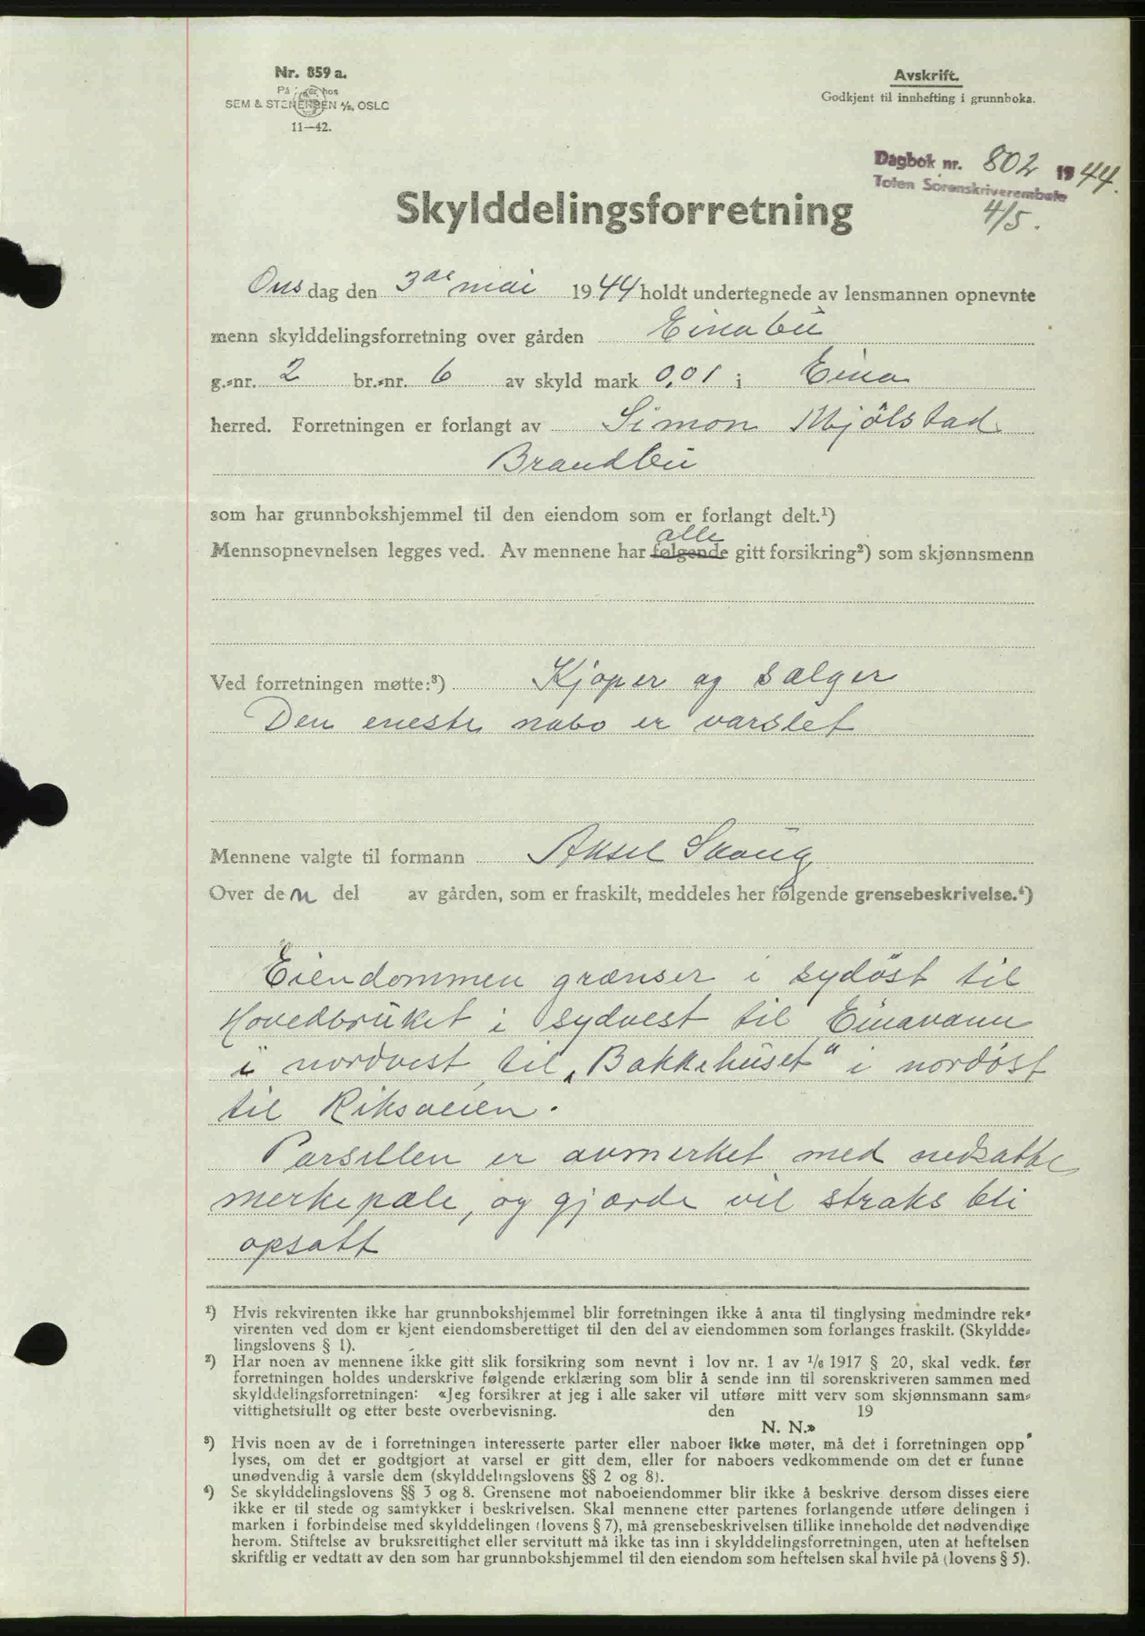 Nr. 859 a.
På hos
SEM & STENERSEN A/S, OSLO
11—42.
Avskrift.
Godkjent til innhefting i grunnboka.
Dagbok nr. 802 1944.
Toten Sorenskriverembete
4/5.
Skylddelingsforretning
Onsdag den 3de mai 1944 holdt undertegnede av lensmannen opnevnte
menn skylddelingsforretning over gården Einabu
g.-nr. 2 br.-nr. 6 av skyld mark 0,01 i Eina
herred. Forretningen er forlangt av Simon Mjölstad
Brandbu
som har grunnbokshjemmel til den eiendom som er forlangt delt.¹)
alle
Mennsopnevnelsen legges ved. Av mennene har følgende gitt forsikring²) som skjønnsmenn
Ved forretningen møtte:³) Kjøper og sælger
Den eneste nabo er varslet
Mennene valgte til formann Aksel Skoug
Over den del av gården, som er fraskilt, meddeles her følgende grensebeskrivelse.⁴)
Eiendommen grænser i sydöst til
Hovedbruket i sydvest til Einavann
i nordvest til „Bakkehuset" i nordöst
til Riksveien.
Parsellen er avmerket med nedsatte
merkepæle, og gjærde vil straks bli
opsatt
¹) Hvis rekvirenten ikke har grunnbokshjemmel blir forretningen ikke å anta til tinglysing medmindre rek-
virenten ved dom er kjent eiendomsberettiget til den del av eiendommen som forlanges fraskilt. (Skyldde-
lingslovens § 1).
²) Har noen av mennene ikke gitt slik forsikring som nevnt i lov nr. 1 av 1/6 1917 § 20, skal vedk. før
forretningen holdes underskrive følgende erklæring som blir å sende inn til sorenskriveren sammen med
skylddelingsforretningen: «Jeg forsikrer at jeg i alle saker vil utføre mitt verv som skjønnsmann sam-
vittighetsfullt og etter beste overbevisning. den 19
N. N.»
³) Hvis noen av de i forretningen interesserte parter eller naboer ikke møter, må det i forretningen opp
lyses, om det er godtgjort at varsel er gitt dem, eller for naboers vedkommende om det er funne
unødvendig å varsle dem (skylddelingslovens §§ 2 og 8).
⁴) Se skylddelingslovens §§ 3 og 8. Grensene mot naboeiendommer blir ikke å beskrive dersom disses eiere
ikke er til stede og samtykker i beskrivelsen. Skal mennene etter partenes forlangende utføre delingen i
marken i forbindelse med skylddelingen (lovens § 7), må grensebeskrivelsen tillike inneholde det nødvendige
herom. Stiftelse av bruksrettighet eller servitutt må ikke tas inn i skylddelingsforretningen, uten at heftelsen
skriftlig er vedtatt av den som har grunnbokshjemmel til den eiendom som heftelsen skal hvile på (lovens § 5).